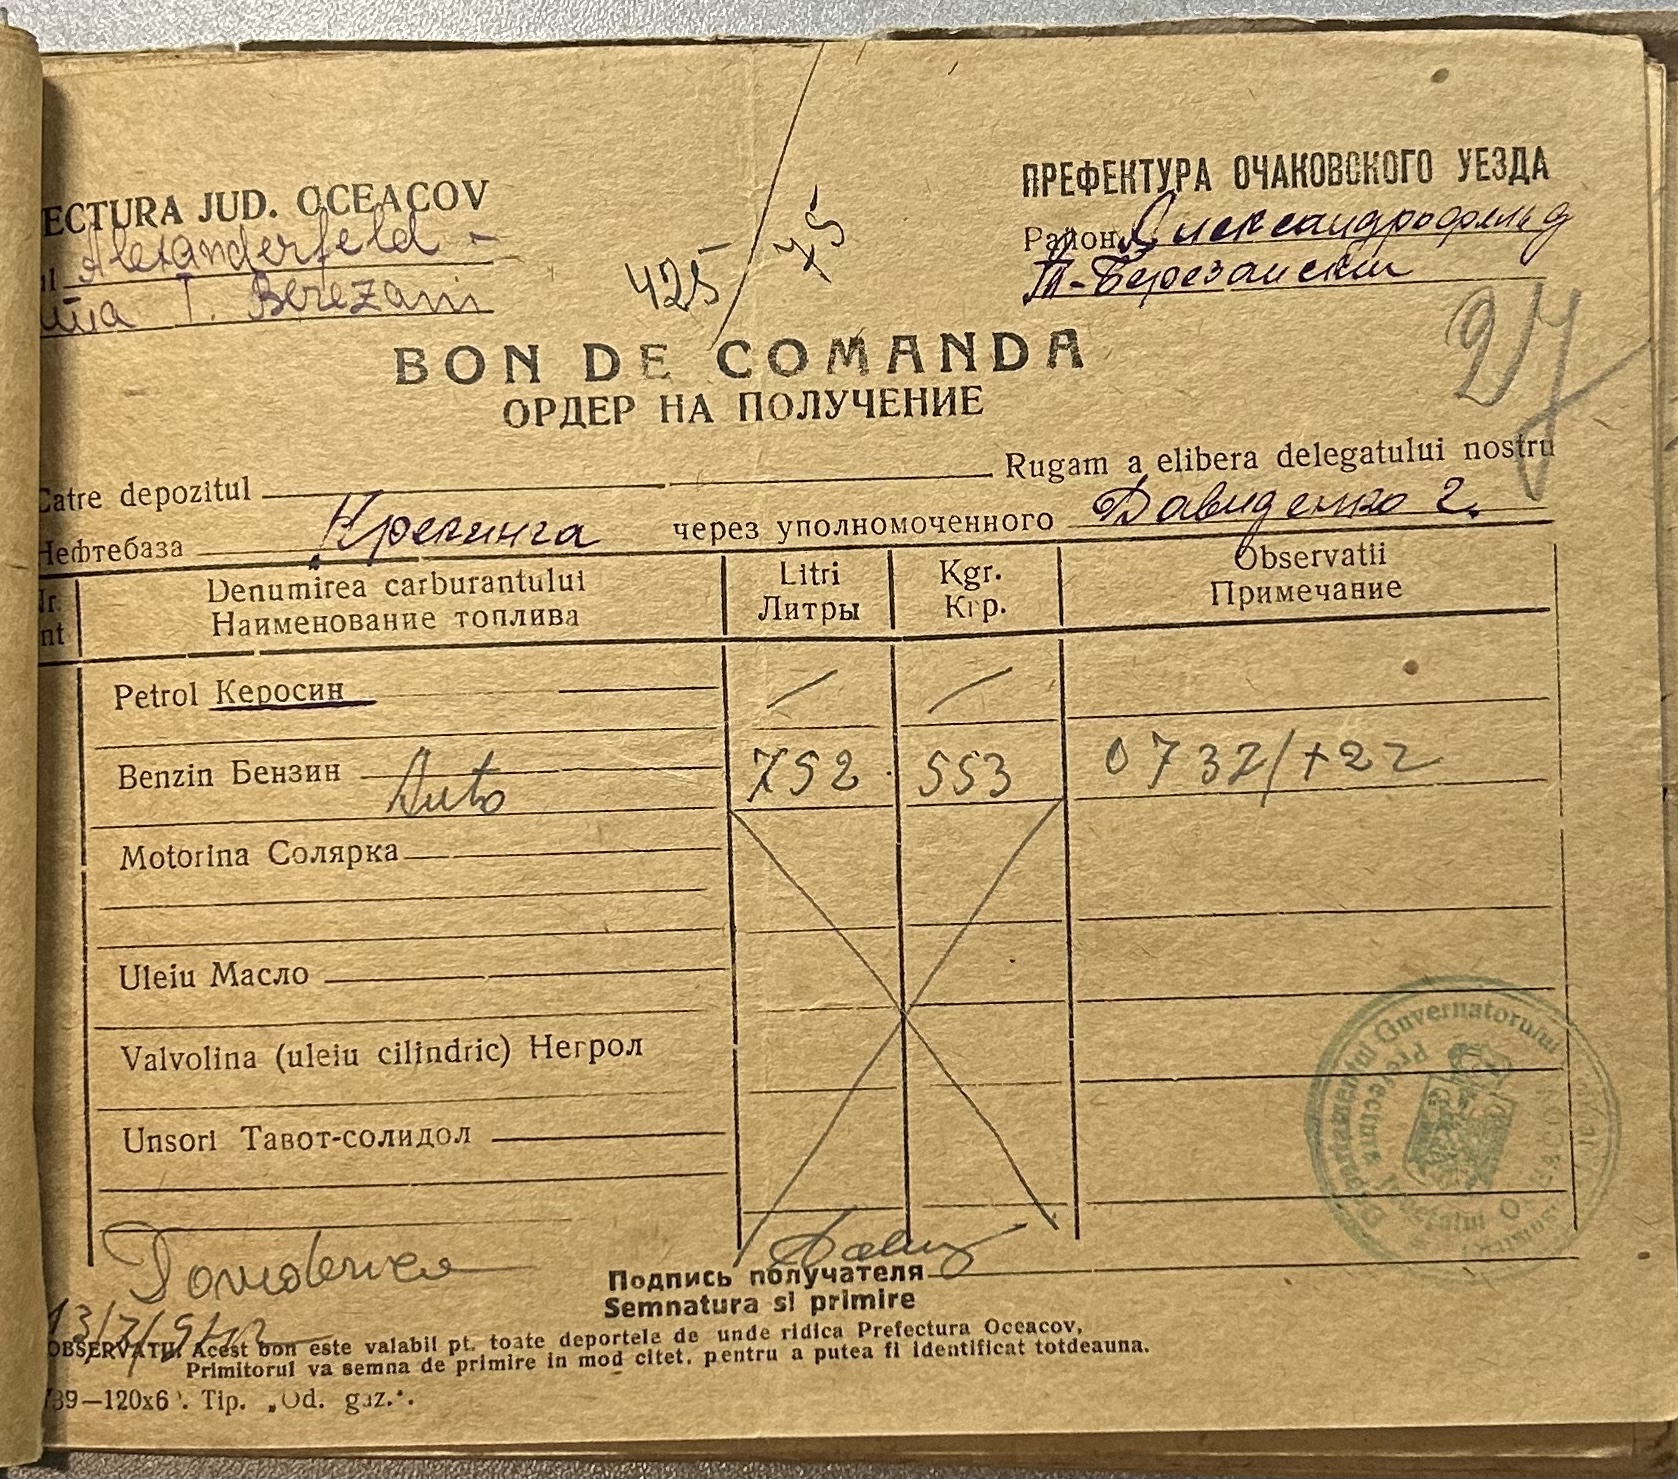 ECTURA JUD. OCEACOV
Alexanderfeld -
T. Berezani
425/75
ПРЕФЕКТУРА ОЧАКОВСКОГО УЕЗДА
Район Александрофельд
Т-Березанский
27
BON DE COMANDA
ОРДЕР НА ПОЛУЧЕНИЕ
Catre depozitul Rugam a elibera delegatului nostru
Нефтебаза Крекинга через уполномоченного Давиденко г.
Nr. Denumirea carburantului Litri Kgr. Observatii
nt Наименование топлива Литры Кгр. Примечание
Petrol Керосин
Benzin Бензин Auto 752 553 0732/+22
Motorina Солярка
Uleiu Масло
Valvolina (uleiu cilindric) Негрол
Unsori Тавот-солидол
Departamentul Guvernatorului
Prefectura Judetului
Подпись получателя
Semnatura si primire
OBSERVATII. Acest bon este valabil pt. toate deportele de unde ridica Prefectura Oceacov,
Primitorul va semna de primire in mod citet, pentru a putea fi identificat totdeauna.
739—120x6 . Tip. „Od. gaz.".